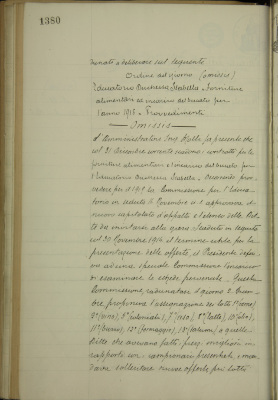 1380
riunato a deliberare sul seguente
Ordine del giorno (omissis)
Educatorio Duchessa Isabella. Forniture
alimentari ed inerenti del bucato per
l'anno 1917 - Provvedimenti
Omissis
L'Amministratore Ing. Halla fa presente che
col 31 Dicembre corrente scadono i contratti per le
forniture alimentari e inerenti del bucato per
l'Educatorio Duchessa Isabella. Occorrendo prov-
vedere per il 1917 la Commissione per l'Educa-
torio in seduta 6 Novembre u.s. approvava il
nuovo capitolato d'appalto e l'elenco delle Dit-
te da invitare alla gara. Scaduto in seguito
col 30 Novembre 1916 il termine utile per la
presentazione delle offerte, il Presidente
ad una speciale Commissione l'incarico
di esaminare le schede pervenute. Questa
Commissione, radunatasi il giorno 2 Dicem-
bre proponeva l'assegnazione dei lotti 1° (carne)
2° (vino), 5° (coloniali), 7° (riso), 8° (latte), 10° (olio),
11° (burro), 12° (formaggio), 13° (salumi) a quelle
Ditte che avevano fatti prezzi migliori in
rapporto coi campionari presentati, e man-
dava sollecitare nuove offerte pei lotti